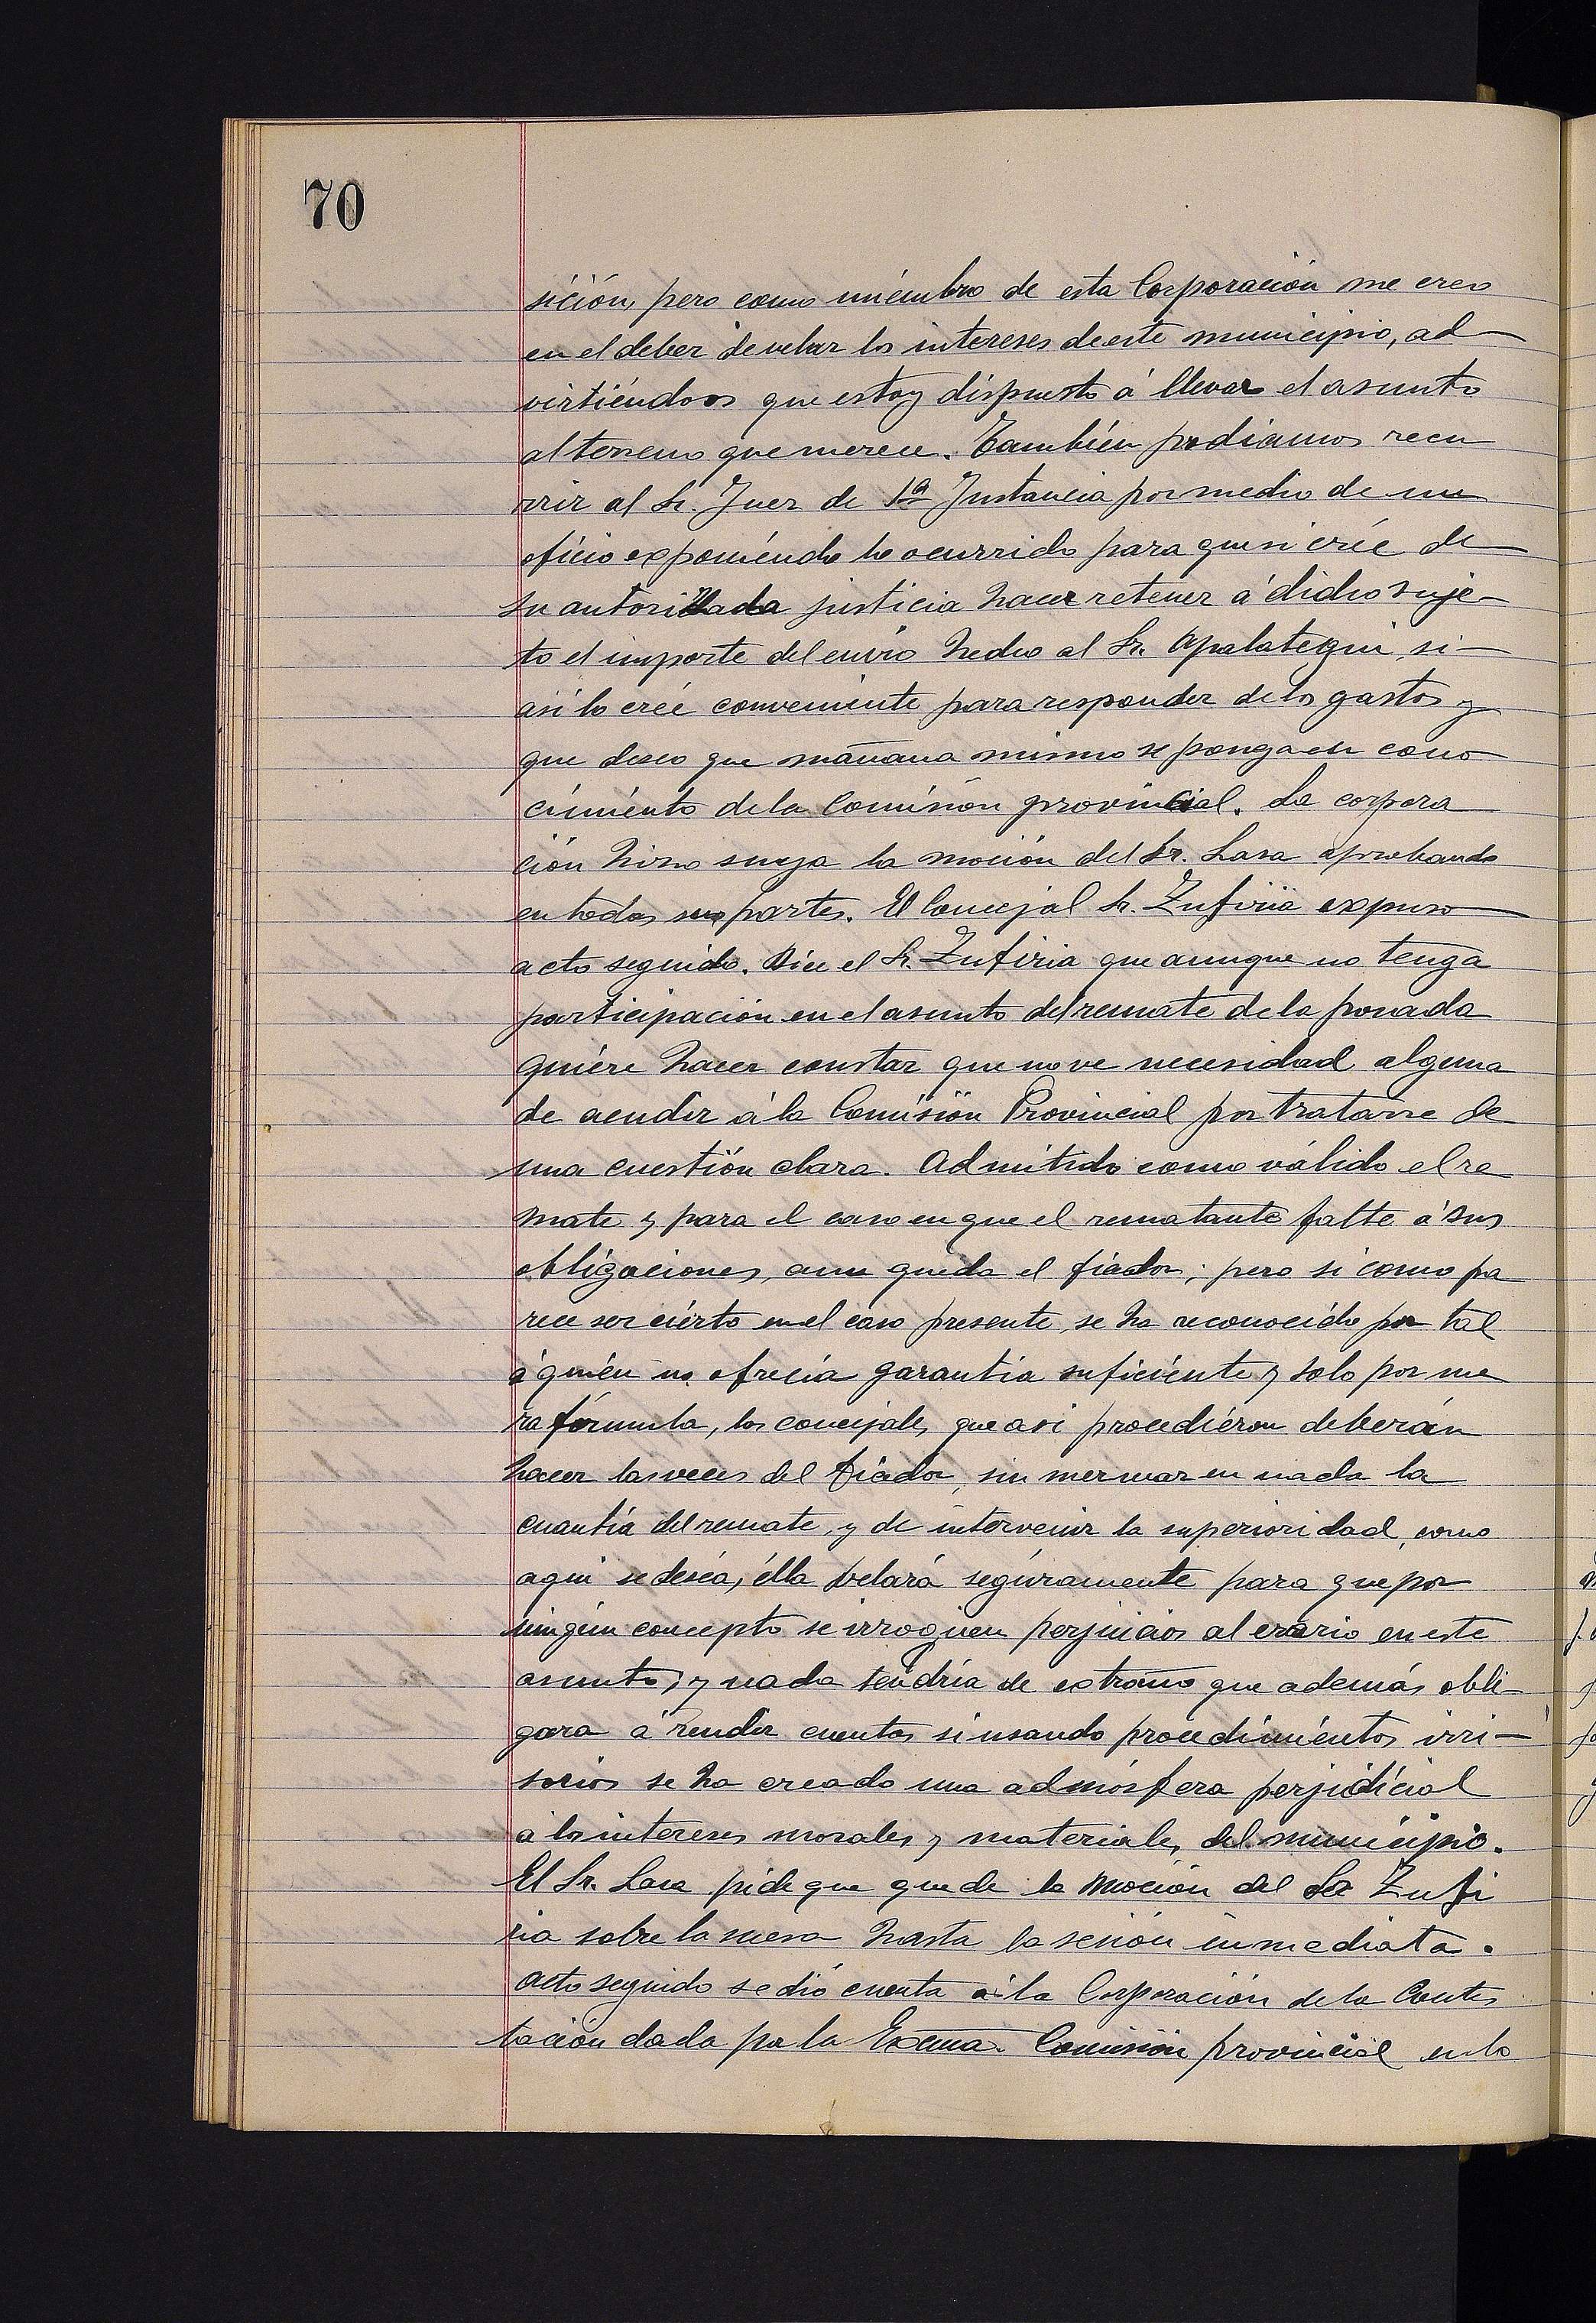 70
sición, pero como miémbro de esta Corporación me creo
en el deber de velar los intereses de este municipio, ad
virtiéndoos que estoy díspuesto á llevar el asunto
al terreno que merece. También podiamos recu
rrir al Sr. Juez de 1ª Instancia por medio de un
oficio exponiéndo lo ocurrido para que si crée de
su autorizada justicia hacer retener á dicho suje-
to el importe del envio hecho al Sr. Apalategui, si-
asi lo crée conveniente para responder de los gastos y
que deseo que mañana mismo se ponga en cono
cimiento de la Comisión provincial. La corpora
ción hizo suya la moción del Sr. Lasa aprobando
en todas sus partes. El Concejal Sr. Zufiria expuso
acto seguido. Dice el Sr. Zufiria que aunque no tenga
participación en el asunto del remate de la posada
quiére hacer constar que no ve necesidad alguna
de acudir á la Comisión Provincial por tratarse de
una cuestión clara. Admitido como válido el re
mate y para el caso en que el rematante falte á sus
obligaciones, aun queda el fiador; pero si como pa
rece ser ciérto en el caso presente, se ha reconocido por tal
á quién no ofrecia garantia suficiénte y solo por me
ra fórmula, los concejales que asi procediéron deberán
hacer las veces del fiador, sin mermar en nada la
cuantía del remate, y de intervenir la superioridad, como
aqui se deséa, élla velará segúramente para que por
ningún concepto se irroguen perjuicios al erario en este
asunto, y nada tendría de extraño que además obli-
gara á rendir cuentas si usando procedimiéntos irri-
sorios se ha creado una admósfera perjidícial
á los intereses morales y materiales del municipio.
El Sr. Lasa pide que quede la moción del Sr Zufi
ria sobre la mesa hasta la sesión inmediata.
Acto seguido se dió cuenta á la Corporación de la Contes
tación dada por la Excma. Comisión provincial en lo